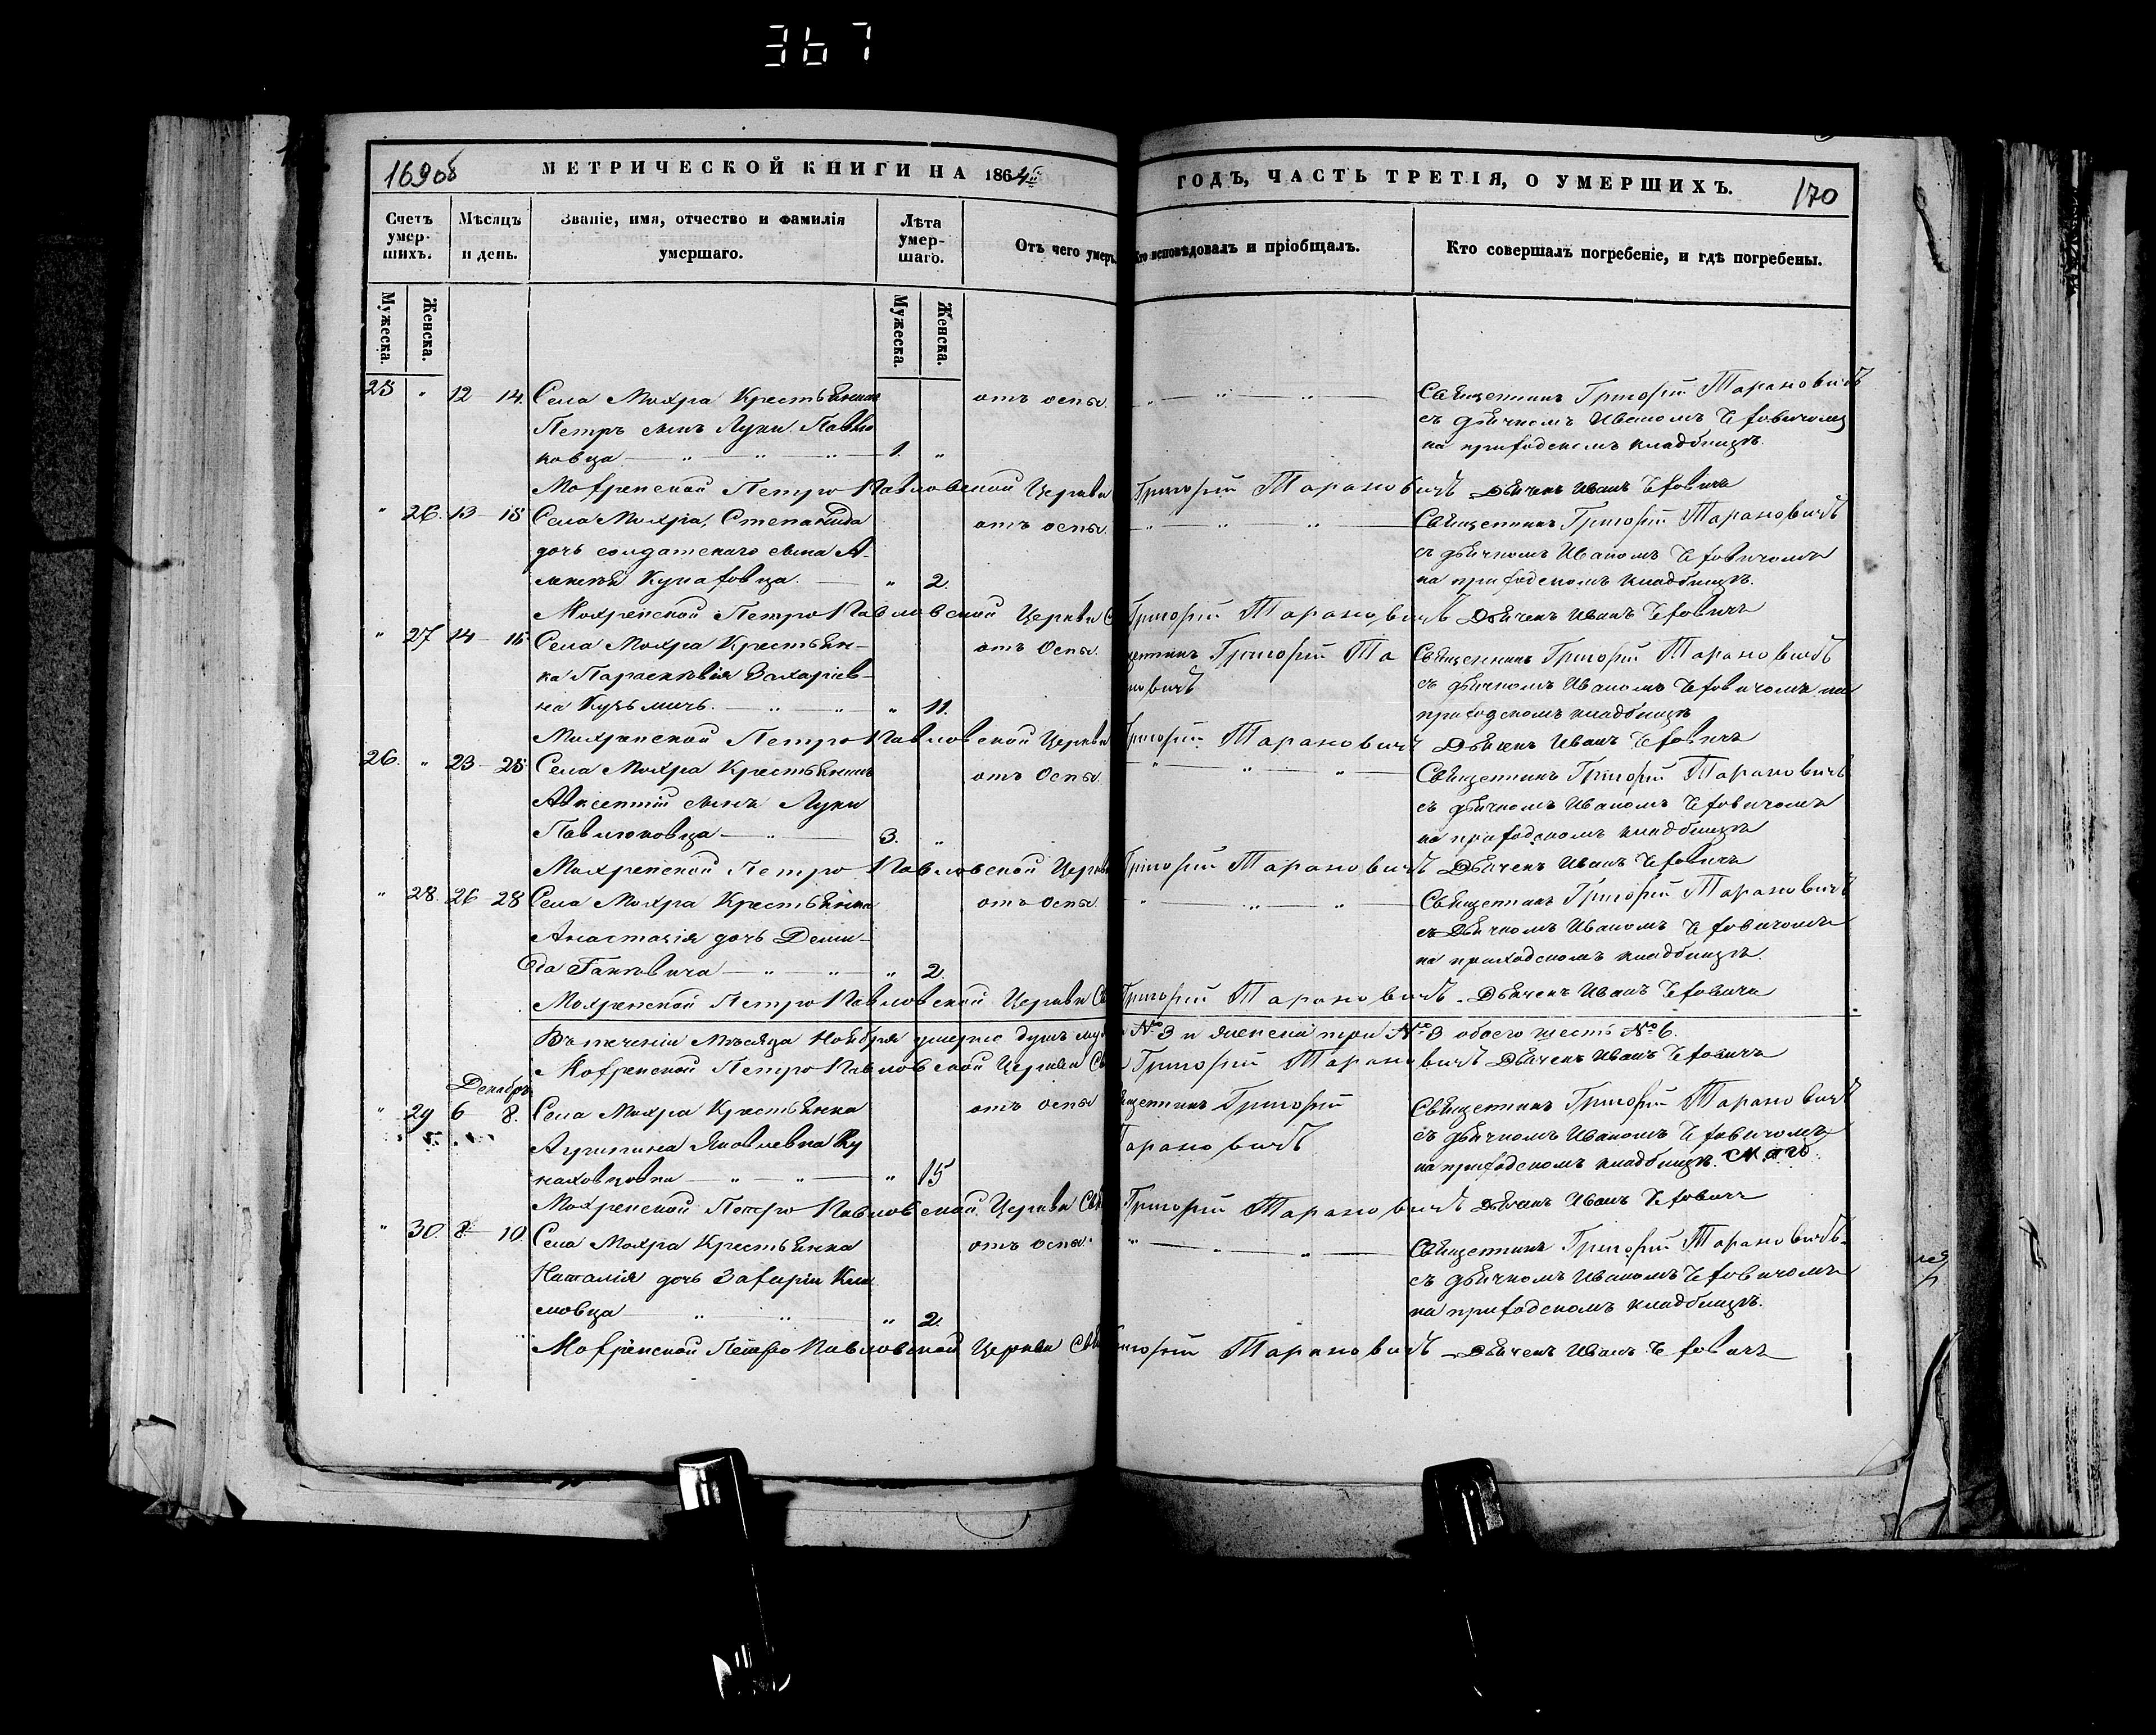 367
169об МЕТРИЧЕСКОЙ КНИГИ НА 1864й ГОДЪ, ЧАСТЬ ТРЕТІЯ, О УМЕРШИХЪ. 170
Счетъ умер-шихъ. Мѣсяцъ и день. Званіе, имя, отчество и фамилія умершаго. Лѣта умер-шаго. Отъ чего умеръ. Кто исповѣдовалъ и пріобщалъ. Кто совершалъ погребеніе, и гдѣ погребены.
Мужеска. Женска. Мужеска. Женска.
25 " 12 14. Села Мохра Крестьянинъ отъ оспы. " " " Священникъ Григорій Тарановичъ
Петръ сынъ Луки Павлю съ дьячкомъ Иваномъ
ковца " " " 1. " на приходскомъ кладбищѣ.
Мохренской Петро Павловской Церкви Григорій Тарановичъ Дьячекъ Иванъ
" 26. 13 15 Села Мохра, Степанида отъ оспы. " " " Священникъ Григорій Тарановичъ
дочь солдатскаго сына А- съ дьячкомъ Иваномъ
Кунаховца. " 2. на приходскомъ кладбищѣ.
Мохренской Петро Павловской Церкви С Григорій Тарановичъ Дьячекъ Иванъ
" 27 14 16 Села Мохра Крестьян- отъ Оспы. щенникъ Григорій Та Священникъ Григорій Тарановичъ
ка Параскевія Захаріев- новичъ съ дьячкомъ Иваномъ на
на Кузьмичъ. " " " 11. приходскомъ кладбищѣ
Мохренской Петро Павловской Церкви Григорій Тарановичъ Дьячекъ Иванъ
26. " 23 25 Села Мохра Крестьянинъ отъ Оспы. " " " Священникъ Григорій Тарановичъ
Авксентій сынъ Луки съ дьячкомъ Иваномъ
Павлюковца " 3. " на приходскомъ кладбищѣ
Мохренской Петро Павловской Церкви Григорій Тарановичъ Дьячекъ Иванъ
" 28. 26 28 Села Мохра Крестьянка отъ Оспы. " " " Священникъ Григорій Тарановичъ
Анастасія дочь Деми- съ Дьячкомъ Иваномъ
да " " " 2. на приходскомъ кладбищѣ.
Мохренской Петро Павловской Церкви Св Григорій Тарановичъ Дьячекъ Иванъ
Въ теченіи Мѣсяца Ноября умерло душъ му № 3 и женска три № 3 обоего шесть № 6.
Мохренской Петро Павловской Церкви Св Григорій Тарановичъ Дьячекъ Иванъ
Декабрь
" 29 6 8. Села Мохра Крестьянка отъ оспы щенникъ Григорій Священникъ Григорій Тарановичъ
Агрипина Яковлевна Ку Тарановичъ съ дьячкомъ Иваномъ
наховцовна " " " 15 на приходскомъ кладбищѣ.
Мохренской Петро Павловской Церкви Свя Григорій Тарановичъ Дьячекъ Иванъ
" 30. 8 10. Села Мохра Крестьянка отъ оспы. " " " Священникъ Григорій Тарановичъ
Наталія дочь Захаріи Кли съ дьячкомъ Иваномъ
мовца " " " 2. на приходскомъ кладбищѣ.
Мохренской Петро Павловской Церкви Свя Григорій Тарановичъ Дьячекъ Иванъ